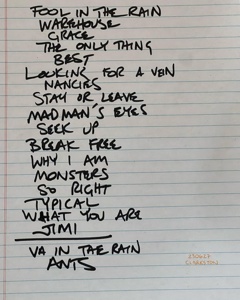 FOOL IN THE RAIN
WAREHOUSE
GRACE
THE ONLY THING
BEST
LOOKING FOR A VEIN
NANCIES
STAY OR LEAVE
MADMAN'S EYES
SEEK UP
BREAK FREE
WHY I AM
MONSTERS
SO RIGHT
TYPICAL
WHAT YOU ARE
JIMI
VA IN THE RAIN
ANTS